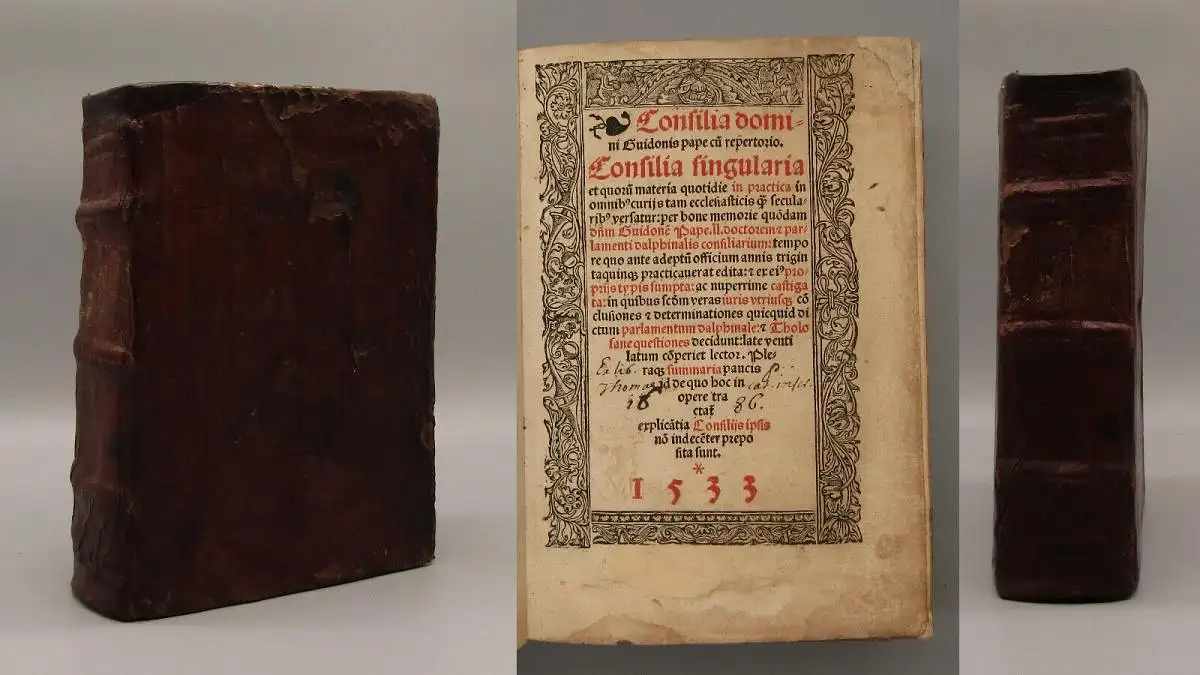 Consilia domi=
ni Guidonis pape cū rep̄ertorio.
Consilia singularia
et quorū materia quotidie in practica in
omnibꝰ curijs tam ecclesiasticis q̃ȝ secula-
ribꝰ versatur: per bone memorie quōdam
dn̄m Guidonē Pape.ll.doctorem ⁊ par-
lamenti dalphinalis consiliarium: tempo
re quo ante adeptū officium annis trigin
taquinqꝫ practicauerat edita: ⁊ ex eiꝰ pro-
prijs typis sumpta: ac nuperrime castiga
ta: in quibus scd̄m veras iuris vtriusqꝫ cō
clusiones ⁊ determinationes quicquid di
ctum parlamentum dalphinale: ⁊ Tholo
sane questiones decidunt: late venti
latum cōperiet lector. Ple-
raqꝫ summaria paucis
id de quo hoc in
opere tra
ctat̄
explicātia Consilijs ipsis
nō indecēter prepo
sita sunt.
*
1533
Ex lib.
Thomas
86.